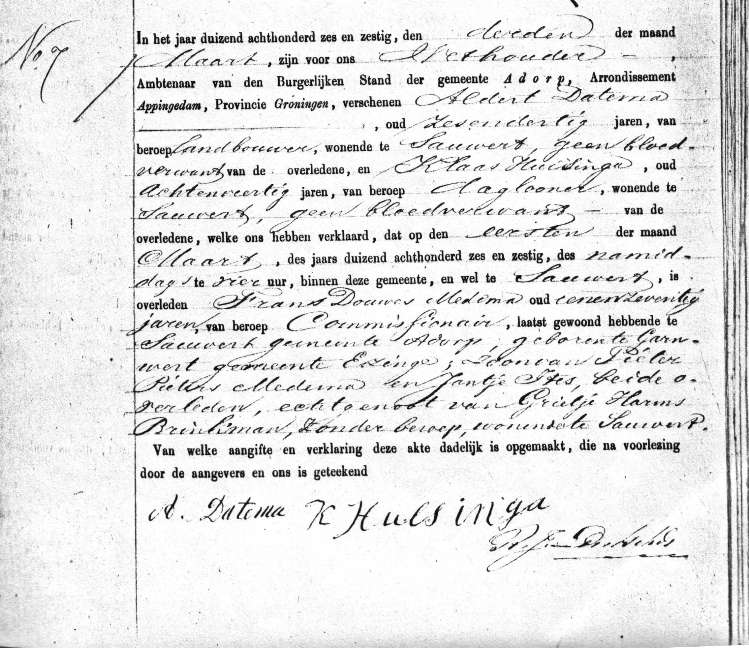 No. 7
In het jaar duizend achthonderd zes en zestig, den derden der maand
Maart, zijn voor ons Wethouder – ,
Ambtenaar van den Burgerlijken Stand der gemeente Adorp, Arrondissement
Appingedam, Provincie Groningen, verschenen Aldert Datema
, oud zesendertig jaren, van
beroep Landbouwer, wonende te Sauwert, geen bloed-
verwant van de overledene, en Klaas Huisinga, oud
Achtenveertig jaren, van beroep daglooner, wonende te
Sauwert, geen bloedverwant – van de
overledene, welke ons hebben verklaard, dat op den eersten der maand
Maart, des jaars duizend achthonderd zes en zestig, des namid-
dags te vier uur, binnen deze gemeente, en wel te Sauwert, is
overleden Frans Douwes Medema oud eenenzeventig
jaren van beroep Commissionair, laatst gewoond hebbende te
Sauwert gemeente Adorp, geboren te Garn-
wert gemeente Ezinge, zoon van Pieter
Pieters Medema en Jantje Ites, beide o-
verleden, echtgenoot van Grietje Harms
Brinkman, zonder beroep, wonende te Sauwert.
Van welke aangifte en verklaring deze akte dadelijk is opgemaakt, die na voorlezing
door de aangevers en ons is geteekend
A. Datema K Huisinga